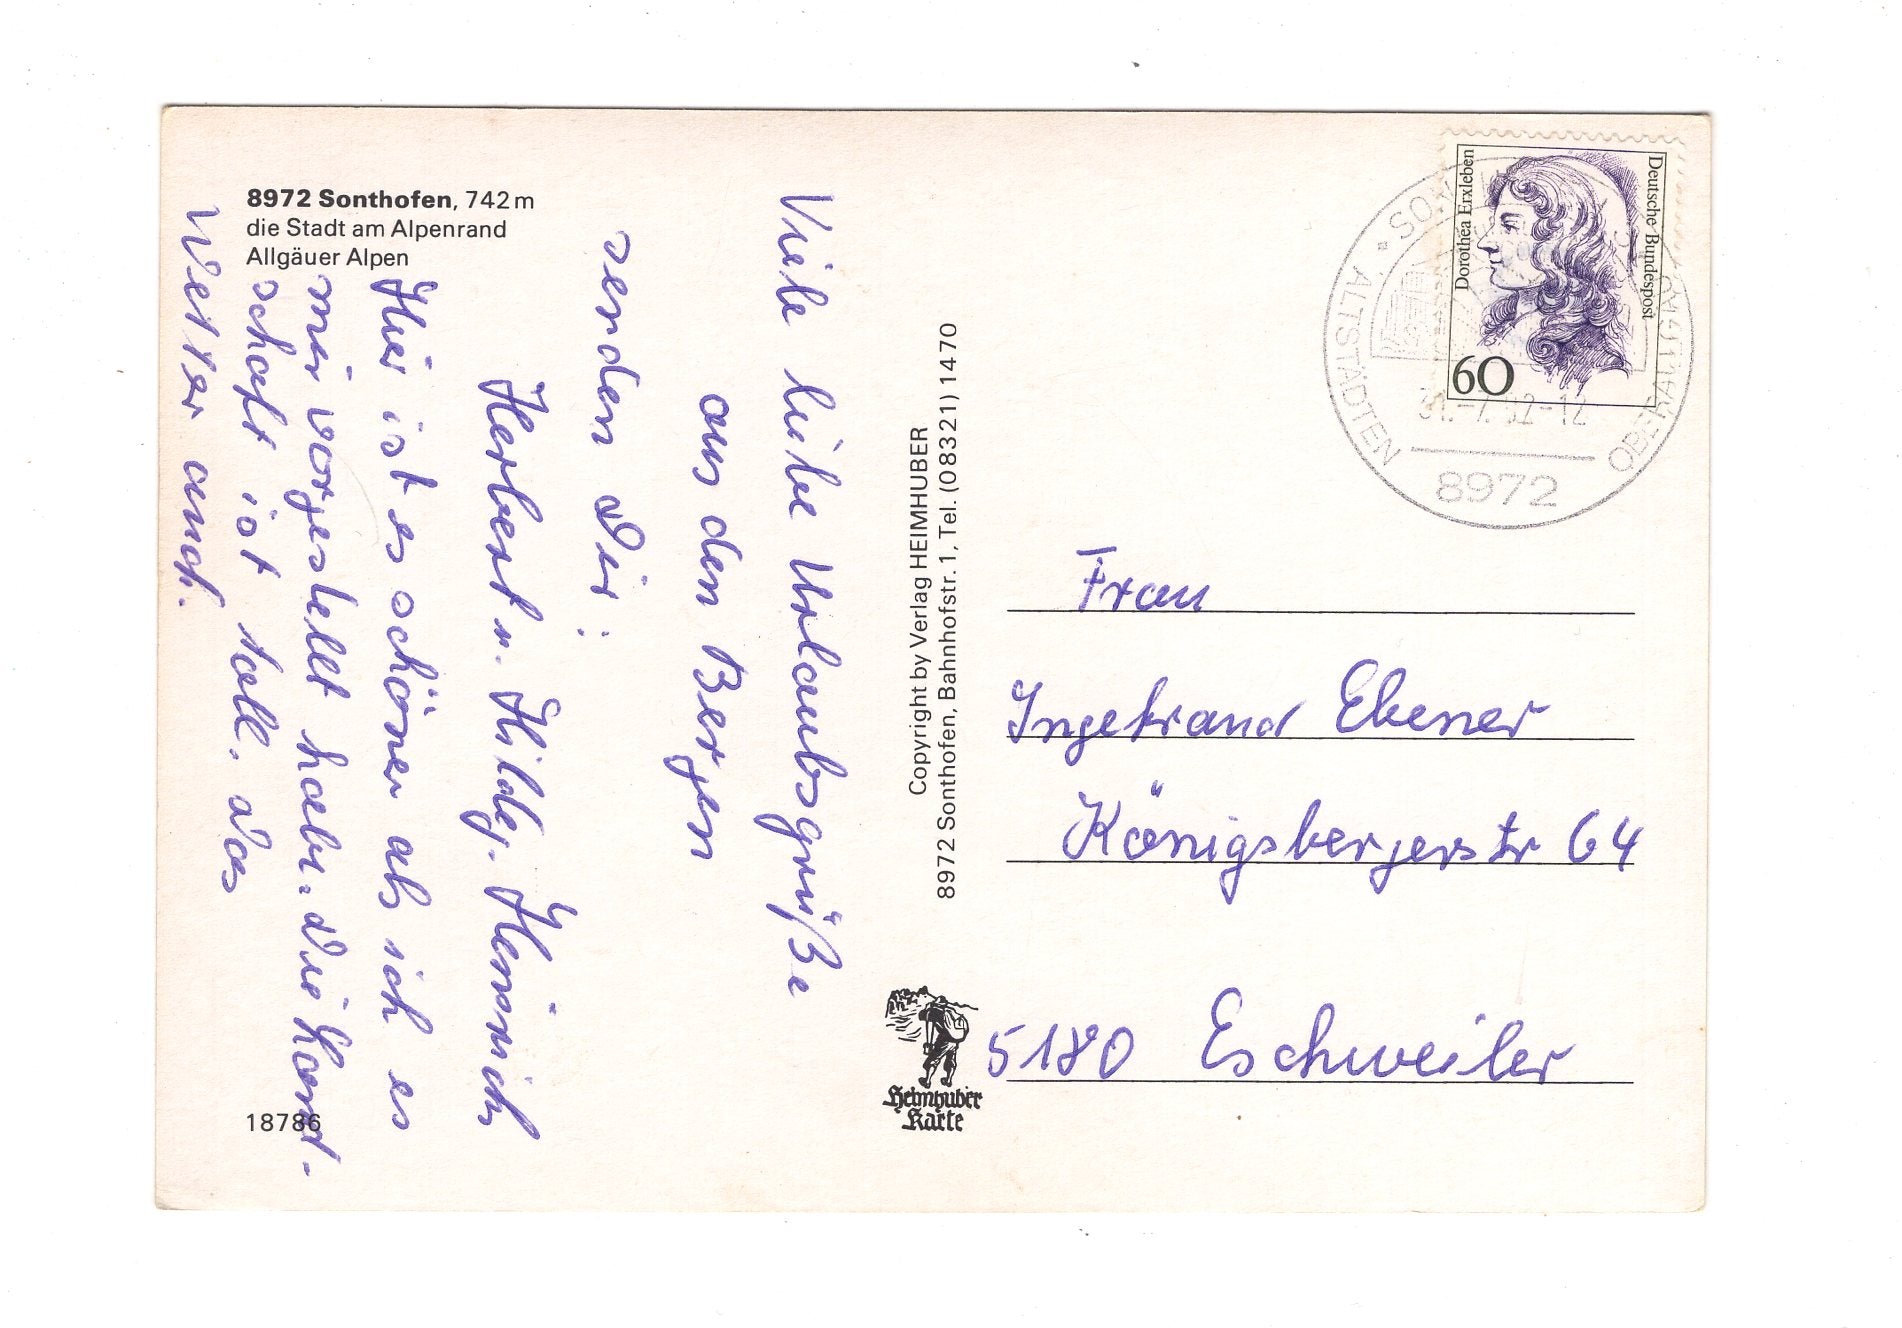 8972 Sonthofen, 742 m
die Stadt am Alpenrand
Allgäuer Alpen
Viele liebe Urlaubsgrüße
aus den Bergen
senden Dir:
Herbert u. Hildeg. Heinrich
Hier ist es schöner als ich es
mir vorgestellt habe. Die Land-
schaft ist toll. Das
Wetter auch.
18786
Copyright by Verlag HEIMHUBER
8972 Sonthofen, Bahnhofstr. 1, Tel. (08321) 1470
Heimhuber
Karte
Dorothea Erxleben
Deutsche Bundespost
60
ALTSTÄDTEN
8972
Frau
Ingetraud Ebener
Königsbergerstr 64
5180 Eschweiler